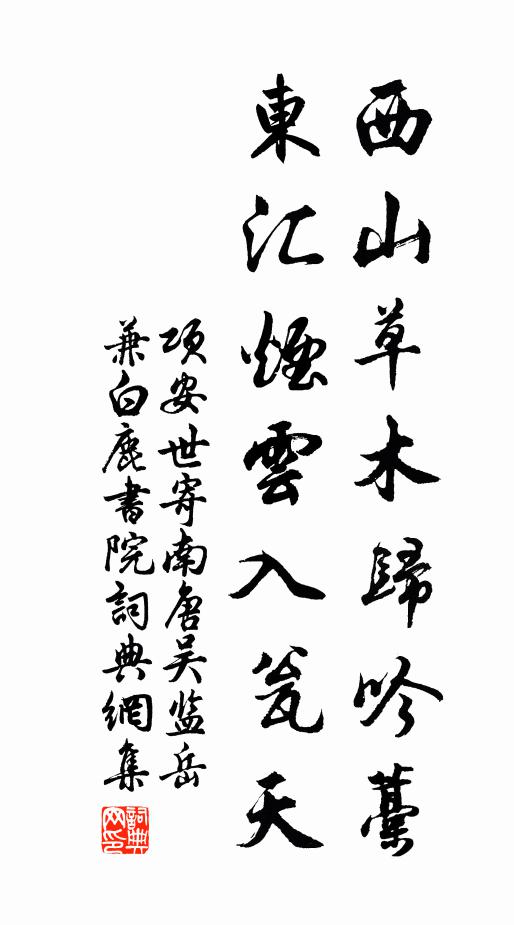 西山草木歸吟藁
東江煙雲入瓮天
項安世寄南唐吴监岳
兼白鹿書院詞典網集
詞典网印